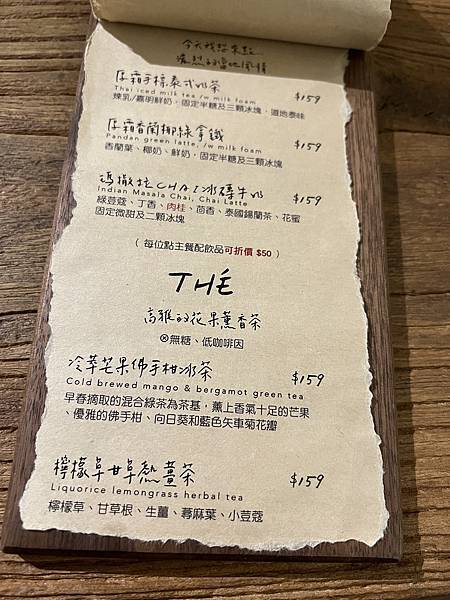 今天我想來點
濃烈的當地風情
厚霜手標泰式奶茶 $159
Thai iced milk tea /w milk foam
煉乳/嘉明鮮奶，固定半糖及三顆冰塊，道地泰味
厚霜香蘭椰綠拿鐵 $159
Pandan green latte, /w milk foam
香蘭葉、椰奶、鮮奶，固定半糖及三顆冰塊
瑪撒拉CHAI冰磚牛奶 $159
Indian Masala Chai, Chai Latte
綠荳蔻、丁香、肉桂、茴香、泰國錫蘭茶、花蜜
固定微甜及二顆冰塊
( 每位點主餐配飲品可折價 $50 )
THÉ
高雅的花果薰香茶
⊗無糖、低咖啡因
冷萃芒果佛手柑冰茶 $159
Cold brewed mango & bergamot green tea
早春摘取的混合綠茶為茶基，薰上香氣十足的芒果
、優雅的佛手柑、向日葵和藍色矢車菊花瓣
檸檬草甘草熱薑茶 $159
Liquorice lemongrass herbal tea
檸檬草、甘草根、生薑、蕁麻葉、小荳蔻